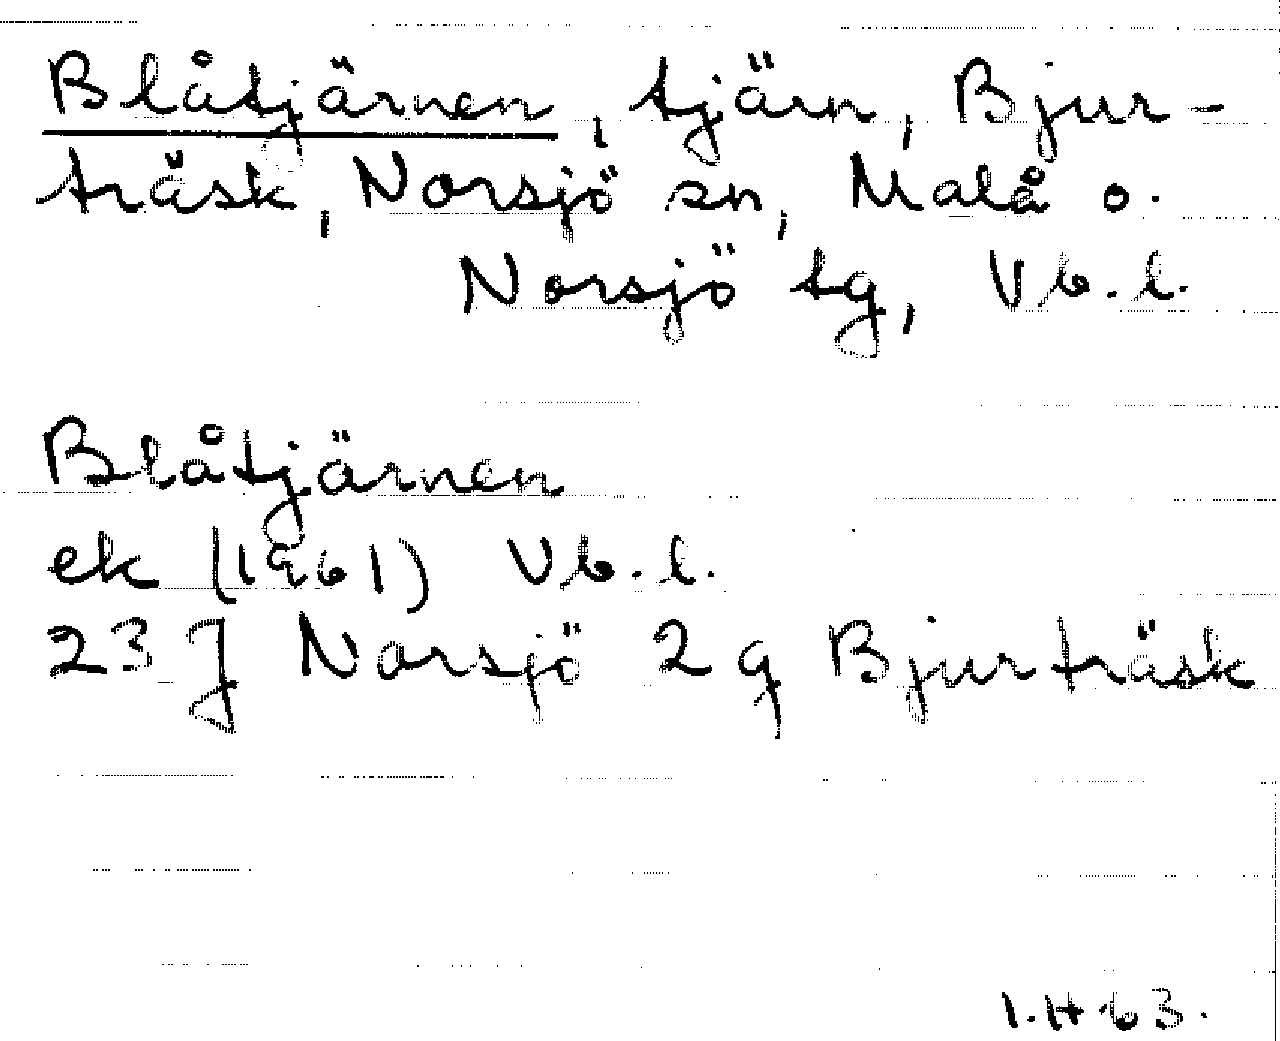 Blåtjärnen, tjärn, Bjur-
träsk, Norsjö sn, Malå o.
Norsjö tg, Vb. l.
Blåtjärnen
ek (1961) Vb. l.
23 J Norsjö 2 g Bjurträsk
I.H 63.